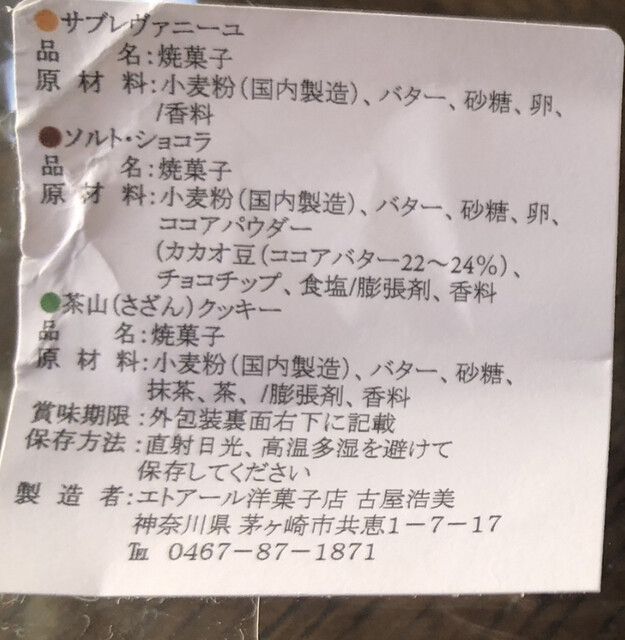 ●サブレヴァニーユ
品名:焼菓子
原材料:小麦粉(国内製造)、バター、砂糖、卵、
/香料
●ソルト・ショコラ
品名:焼菓子
原材料:小麦粉(国内製造)、バター、砂糖、卵、
ココアパウダー
(カカオ豆(ココアバター22～24%)、
チョコチップ、食塩/膨張剤、香料
●茶山(さざん)クッキー
品名:焼菓子
原材料:小麦粉(国内製造)、バター、砂糖、
抹茶、茶、/膨張剤、香料
賞味期限:外包装裏面右下に記載
保存方法:直射日光、高温多湿を避けて
保存してください
製造者:エトアール洋菓子店 古屋浩美
神奈川県 茅ヶ崎市共恵1-7-17
℡ 0467-87-1871